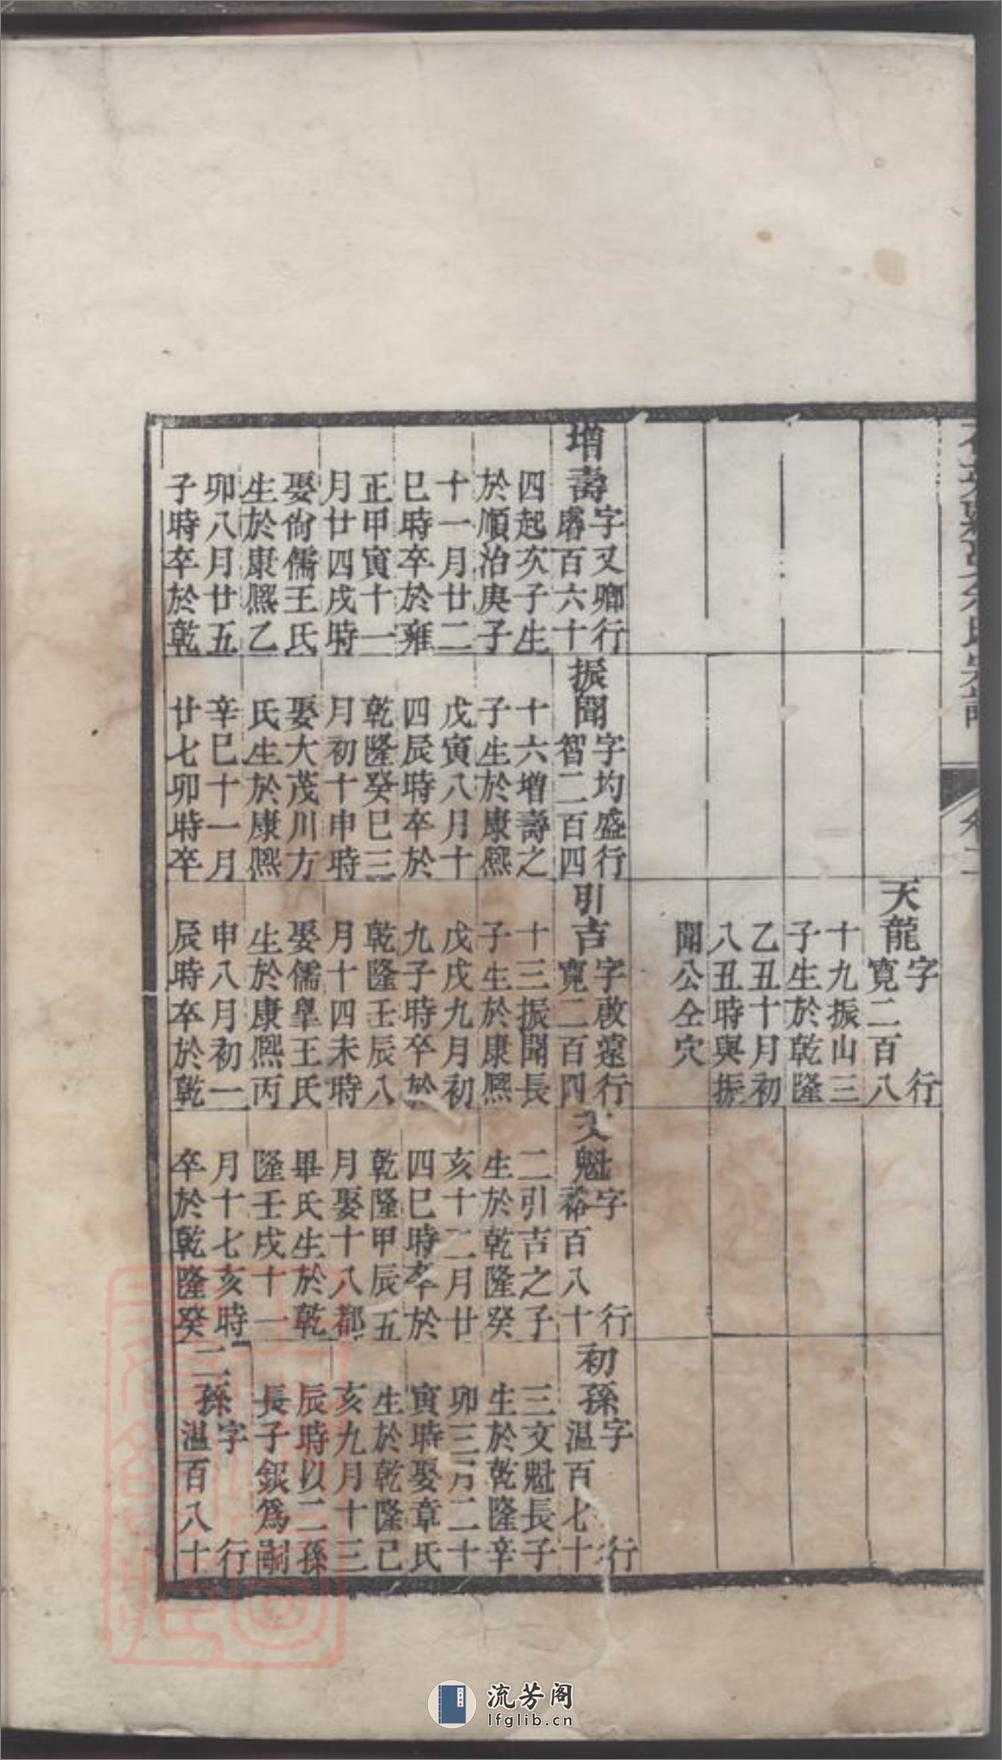 卷二
天龍字 行
寬二百八
十九振山三
子生於乾隆
乙丑十月初
八丑時與振
聞公仝穴
增壽字又卿行
睿百六十
四起次子生
於順治庚子
十一月廿二
巳時卒於雍
正甲寅十一
月廿四戌時
娶尙儒王氏
生於康熙乙
卯八月廿五
子時卒於乾
振聞字均盛行
智二百四
十六增壽之
子生於康熙
戊寅八月十
四辰時卒於
乾隆癸巳三
月初十申時
娶大茂川方
氏生於康熙
辛巳十一月
廿七卯時卒
引吉字啟遠行
寬二百四
十三振聞長
子生於康熙
戊戌九月初
九子時卒於
乾隆壬辰八
月十四未時
娶儒皐王氏
生於康熙丙
申八月初一
辰時卒於乾
文魁字 行
裕百八十
二引吉之子
生於乾隆癸
亥十二月廿
四巳時卒於
乾隆甲辰五
月娶十八都
畢氏生於乾
隆壬戌十一
月十七亥時
卒於乾隆癸
初孫字 行
溫百七十
三文魁長子
生於乾隆辛
卯三月二十
寅時娶章氏
生於乾隆己
亥九月十三
辰時以二孫
長子銀爲嗣
二孫字 行
溫百八十
流芳阁
lfglib.cn